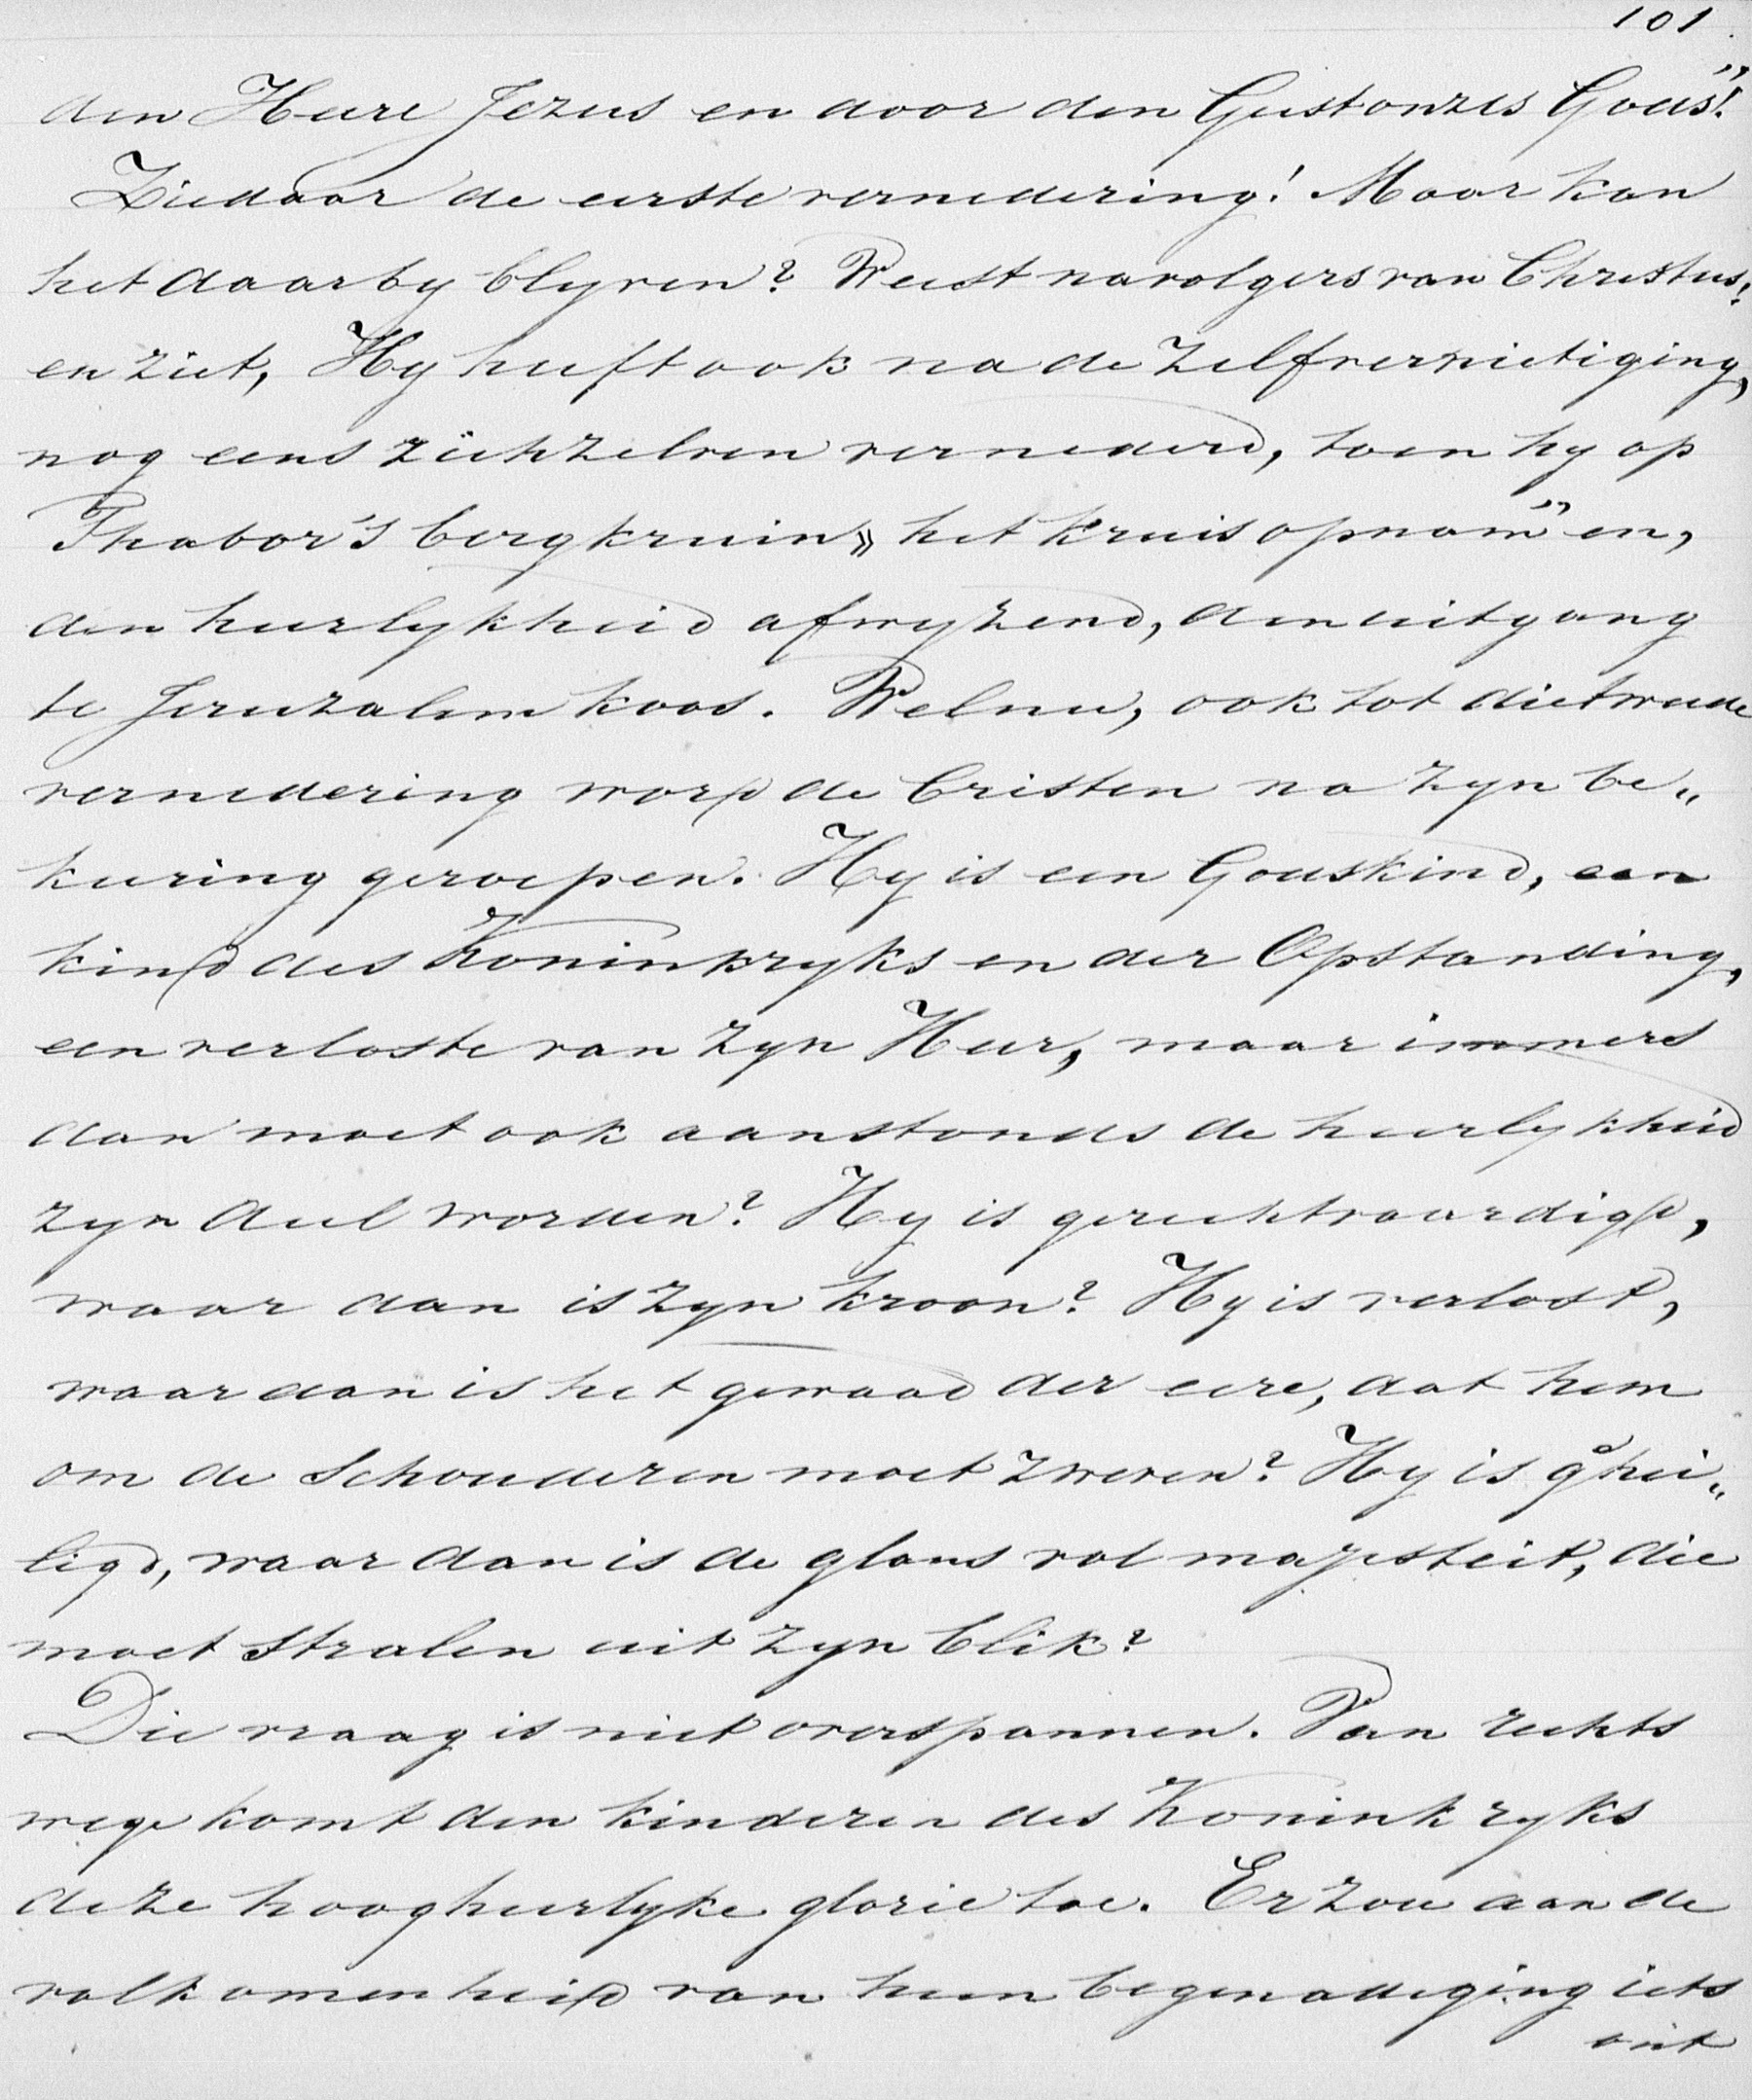 101.
den Heere Jezus en door den Geest onzes Gods!”
Ziedaar de eerste vernedering! Maar kan
het daarby blyven? Weest navolgers van Christus!
en ziet, Hy heeft ook na de Zelfvernietiging,
nog eens zichzelven vernederd, toen hy op
Thabor's bergkruin „het Kruis opnam” en,
den heerlykheid afwyzend, den uitgang
te Jeruzalem koos. Welnu, ook tot die tweede
vernedering word de Cristen na zyn be„
keering geroepen. Hy is een Godskind, een
kind des Koninkryks en der Opstanding,
een verloste van zyn Heer, maar immers
dan moet ook aanstonds de heerlykheid
zyn deel worden? Hy is gerechtvaardigd,
waar dan is zyn kroon? Hy is verlost,
waar dan is het gewaad der eere, dat hem
om de Schouderen moet zweven? Hy is gehei„
ligd, waar dan is de glans vol majesteit, die
moet Stralen uit zyn blik?
Die vraag is niet overspannen. Van rechts
wege komt den kinderen des Koninkryks
deze hoogheerlyke glorie toe. Er zou aan de
volkomenheid van hun begenadiging iets
ont